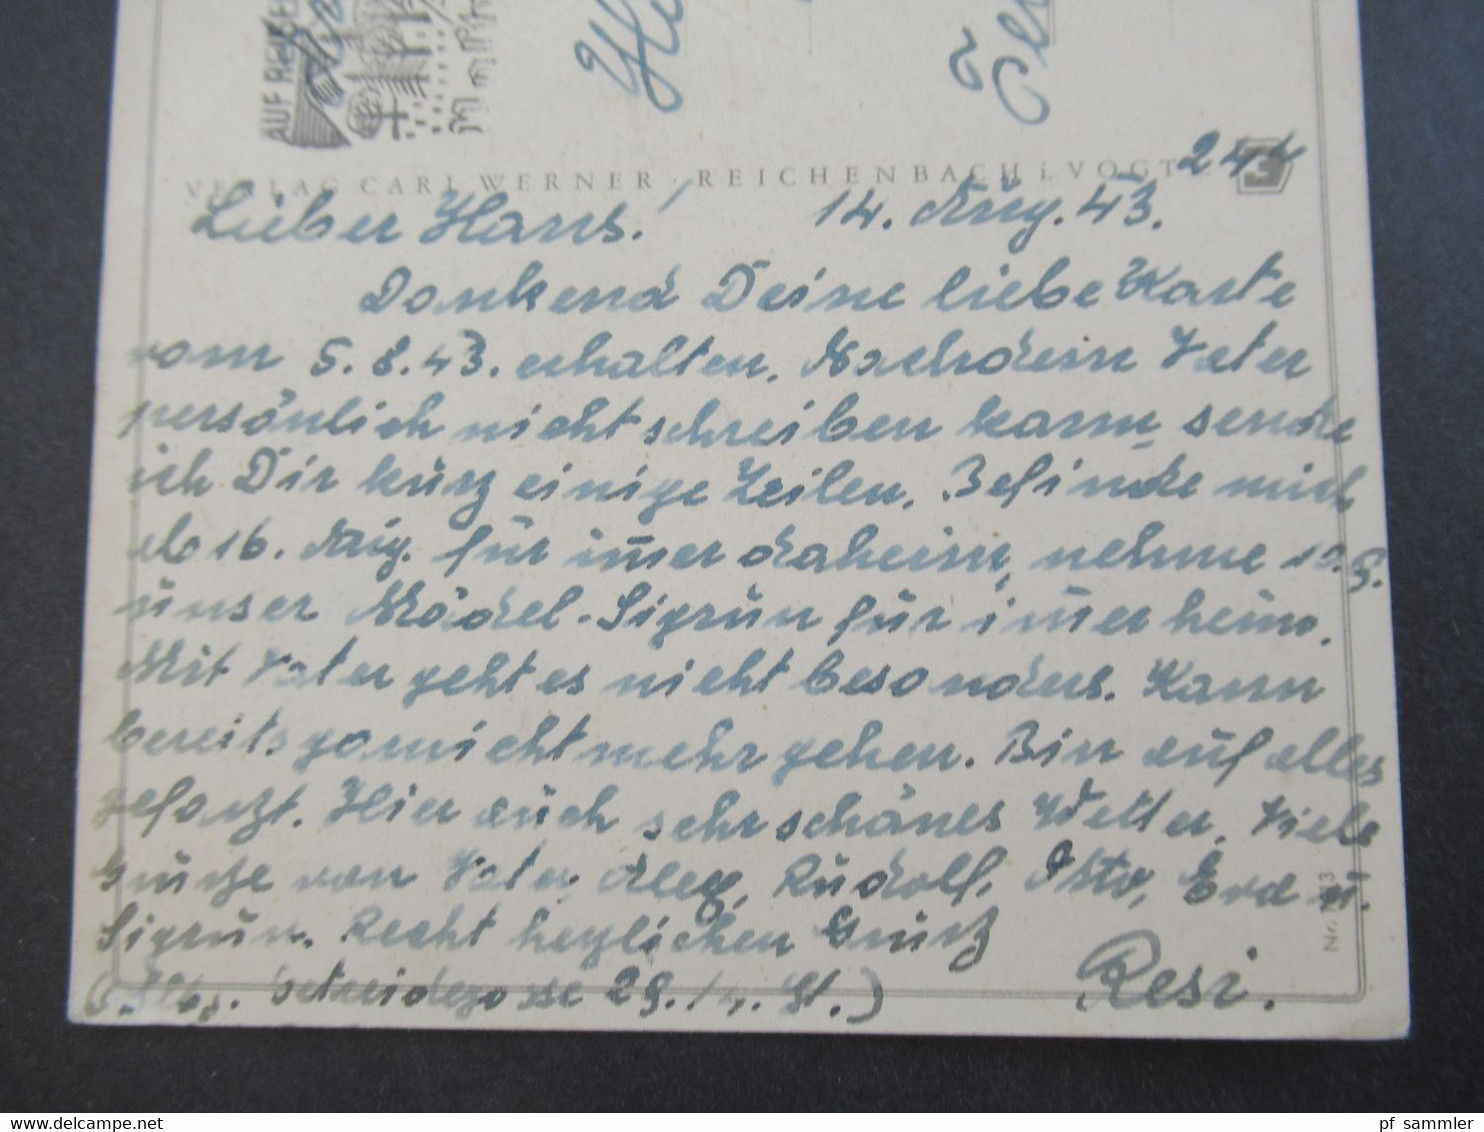 AUF REISE
VERLAG CARL WERNER · REICHENBACH i. VOGT
3
Lieber Hans! 14. Aug. 43.
Dankend Deine liebe Karte
vom 5.8.43. erhalten. Nachdem Vater
persönlich nicht schreiben kann, sende
ich Dir kurz einige Zeilen. Befinde mich
ab 16. Aug. für im̅er daheim, nehme 10.9.
unser Mädel-Sigrun für im̅er heim.
Mit Vater geht es nicht besonders. Kann
bereits garnicht mehr gehen. Bin auf alles
gefaszt. Hier auch sehr schönes Wetter. Viele
von Vater, Rudolf, Eva u.
Sigrun. Recht herzlichen Grusz
Resi.
Getreidegasse 29. St.)
Nr.
pf sammler
www.delcampe.net